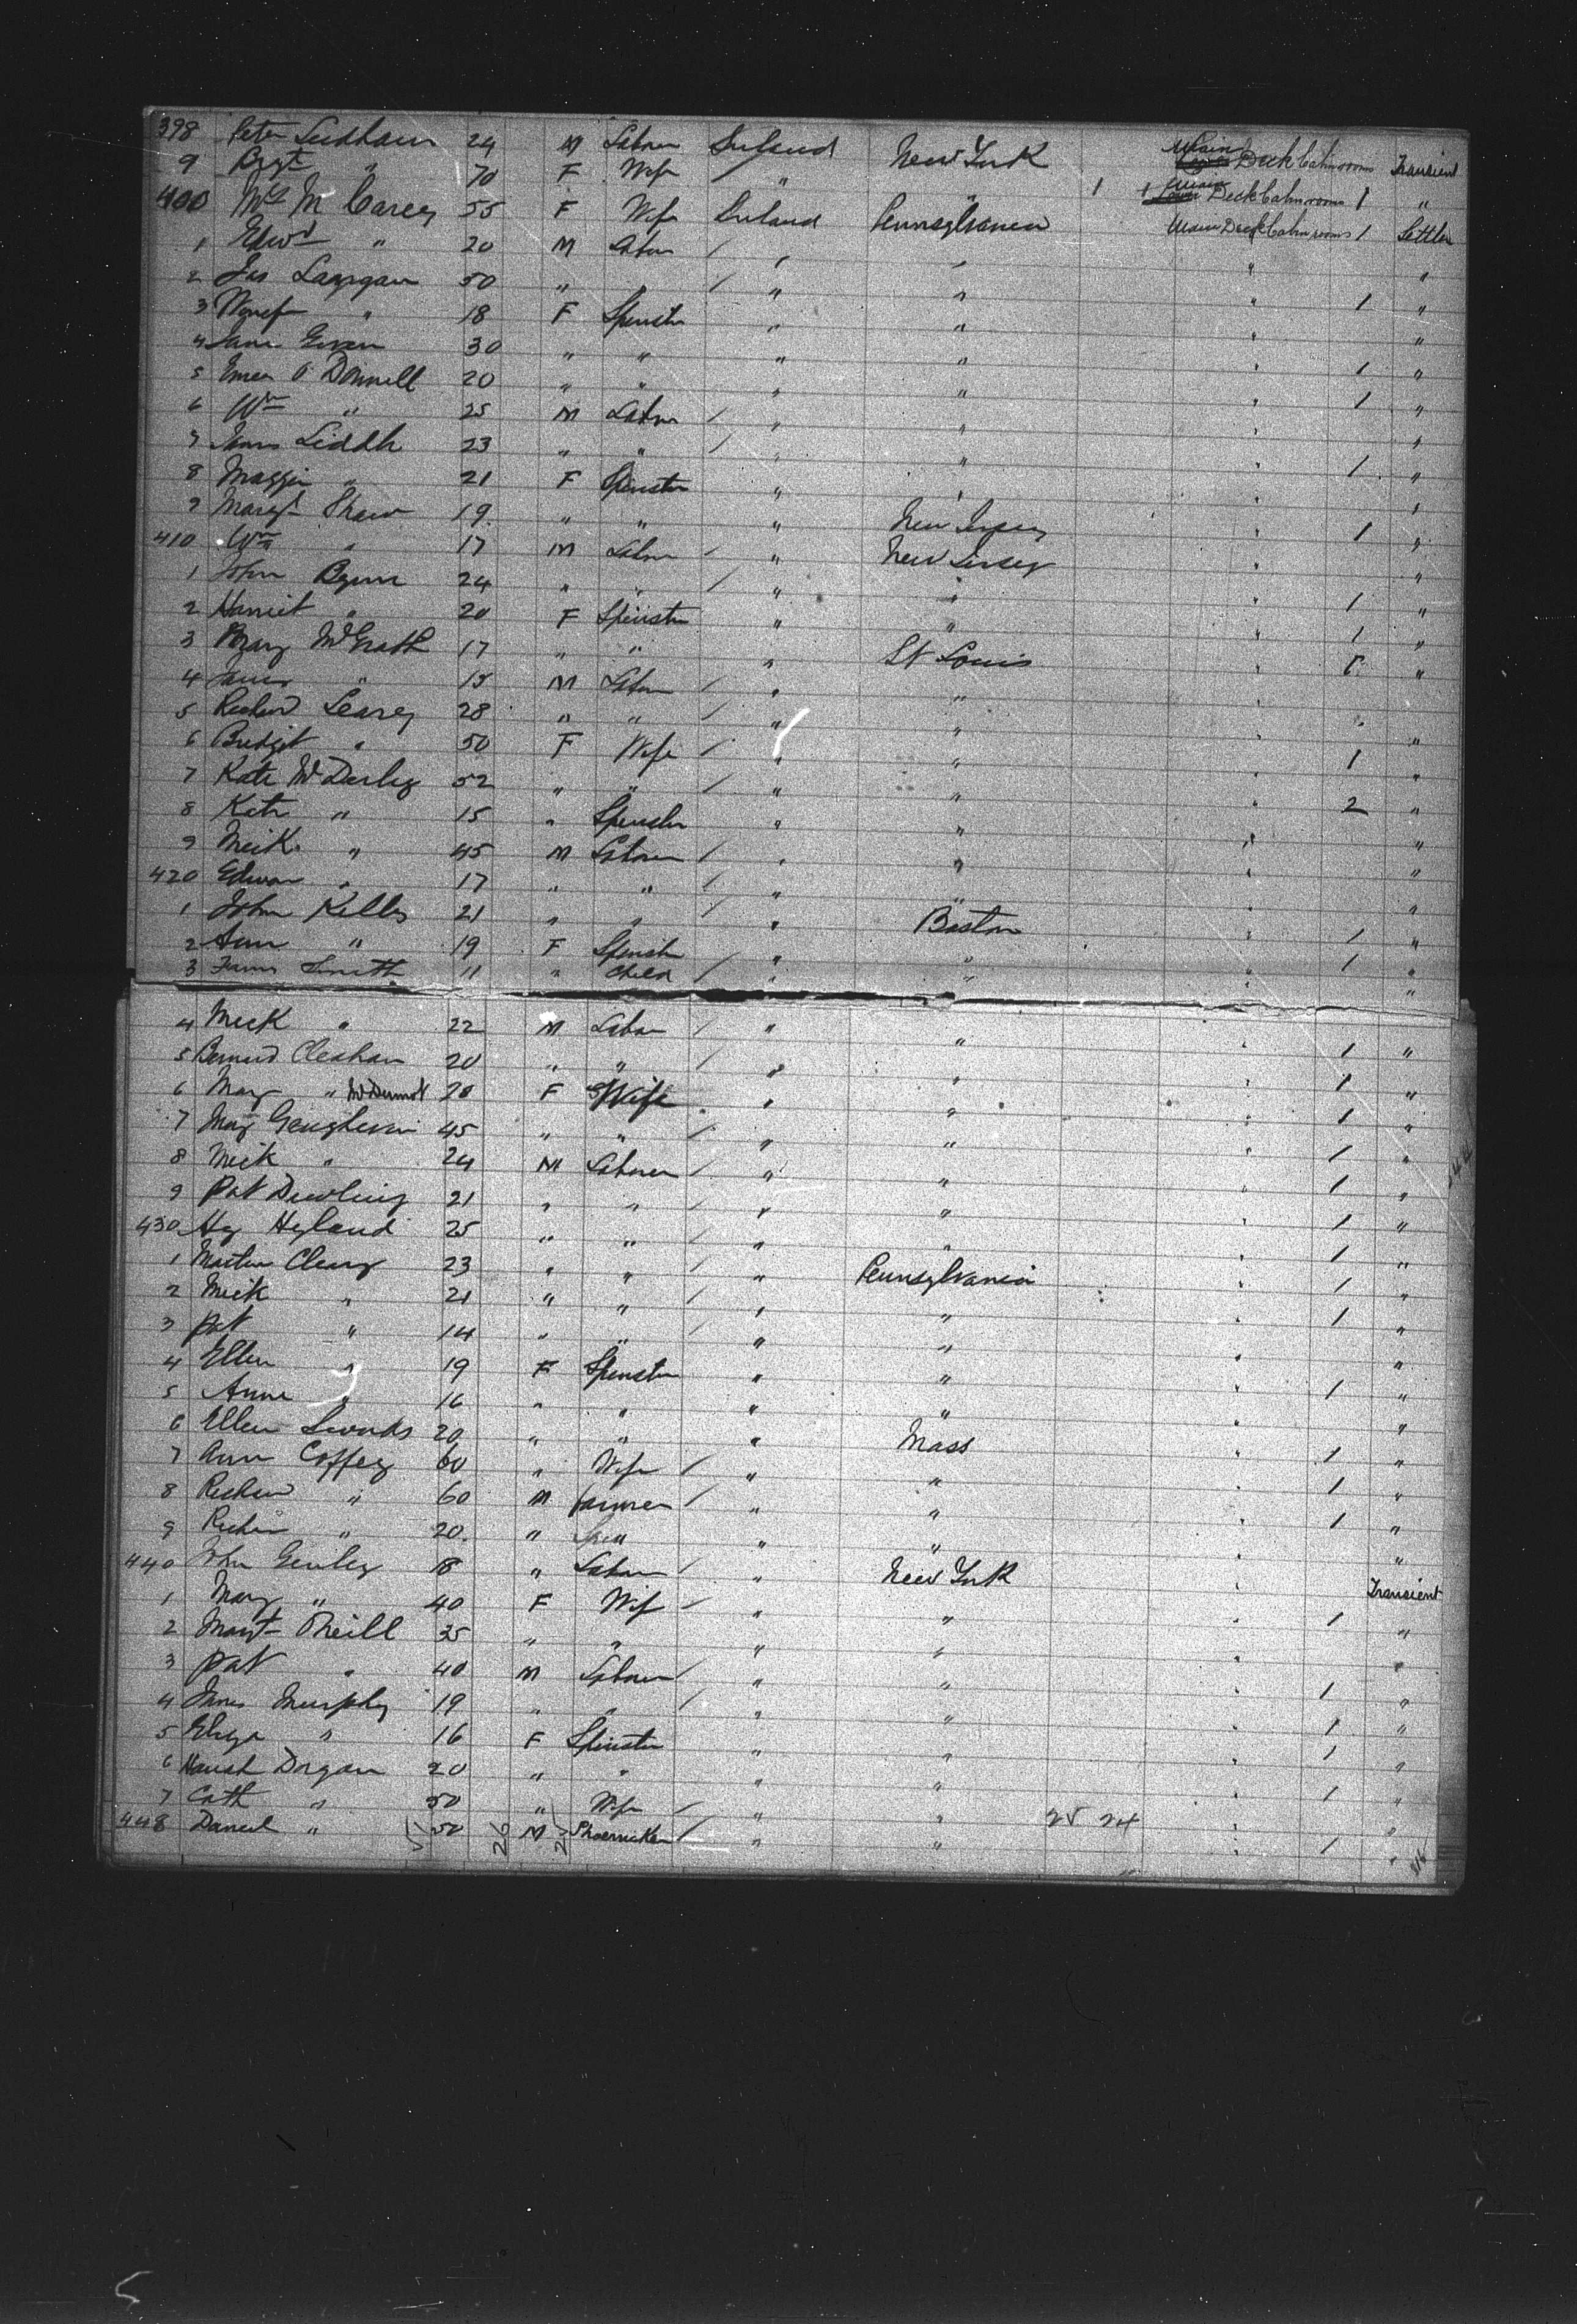 398 Peter Ludham 24 M Labor Ireland New York Main Deck Cabin rooms Transient
9 Brgt " 70 F Wife / " " 1 1 Main Deck Cabin rooms 1 "
400 Mrs M Carey 55 F Wife Ireland Pennsylvania Main Deck Cabin rooms 1 Settler
1 Edwd " 20 M Labor / " " " "
2 Jas Langan 50 " " / " " " 1 "
3 " 18 F Spinster " " " "
4 Jane 30 " " " " " 1 "
5 O Donnell 20 " " " " " 1 "
6 Wm " 25 M Labor / " " " "
7 James Liddle 23 " " / " " " 1 "
8 Maggie " 21 F Spinster " " " "
9 Margt Shaw 19 " " " New Jersey 1 "
410 Wm " 17 M Labor / " New Jersey "
1 John Byrne 24 " " / " " " 1 "
2 Harriet " 20 F Spinster " " " 1 "
3 Mary McGrath 17 " " " St Louis " "
4 James " 15 M Labor / " " " "
5 Richard Leary 28 " " / " " "
6 Bridget " 50 F Wife / " " " 1 "
7 Kate McDarby 52 " " / " " " 2 "
8 Kate " 15 " Spinster " " " "
9 Mick " 45 M Labor / " " "
420 Edwar " 17 " " / " " "
1 John Kelly 21 " " / " Boston " 1 "
2 Ann " 19 F Spinster " " " 1 "
3 Smith 11 " Child / " " " "
4 Mick " 22 M Labor / " " " 1 "
5 Bernard Cleahan 20 " " / " " " 1 "
6 Mary " McDermot 20 F Wife " " " 1 "
7 Mary Geughevan 45 " " / " " " 1 "
8 Mick " 24 M Laborer / " " " 1 "
9 Pat Dowling 21 " " / " " " 1 "
430 Hy Hyland 25 " " / " " " 1 "
1 Martin Cleary 23 " " / " Pennsylvania " 1 "
2 Mick " 21 " " / " " " 1 "
3 Pat " 14 " " / " " " "
4 Ellen " 19 F Spinster " " " 1 "
5 Anne " 16 " " " " " "
6 Ellen 20 " " " Mass " 1 "
7 Ann Coffey 60 " Wife / " " " 1 "
8 Richard " 60 M Farmer / " " " 1 "
9 Richar " 20 " " " " "
440 John Genley 18 " Labor / " New York " Transient
1 Mary " 40 F Wif / " " " 1 "
2 Margt ONeill 35 " " " " " "
3 Pat " 40 M Laborer / " " " 1 "
4 James Murphy 19 " " / " " " 1 "
5 Eliza " 16 F Spinster " " " 1 "
6 Hanah Dorgan 20 " " " " " 1 "
7 Cath " 50 " Wife / " " 25 24 "
448 Daniel " 50 M Shoemaker / " " " 1 "
26